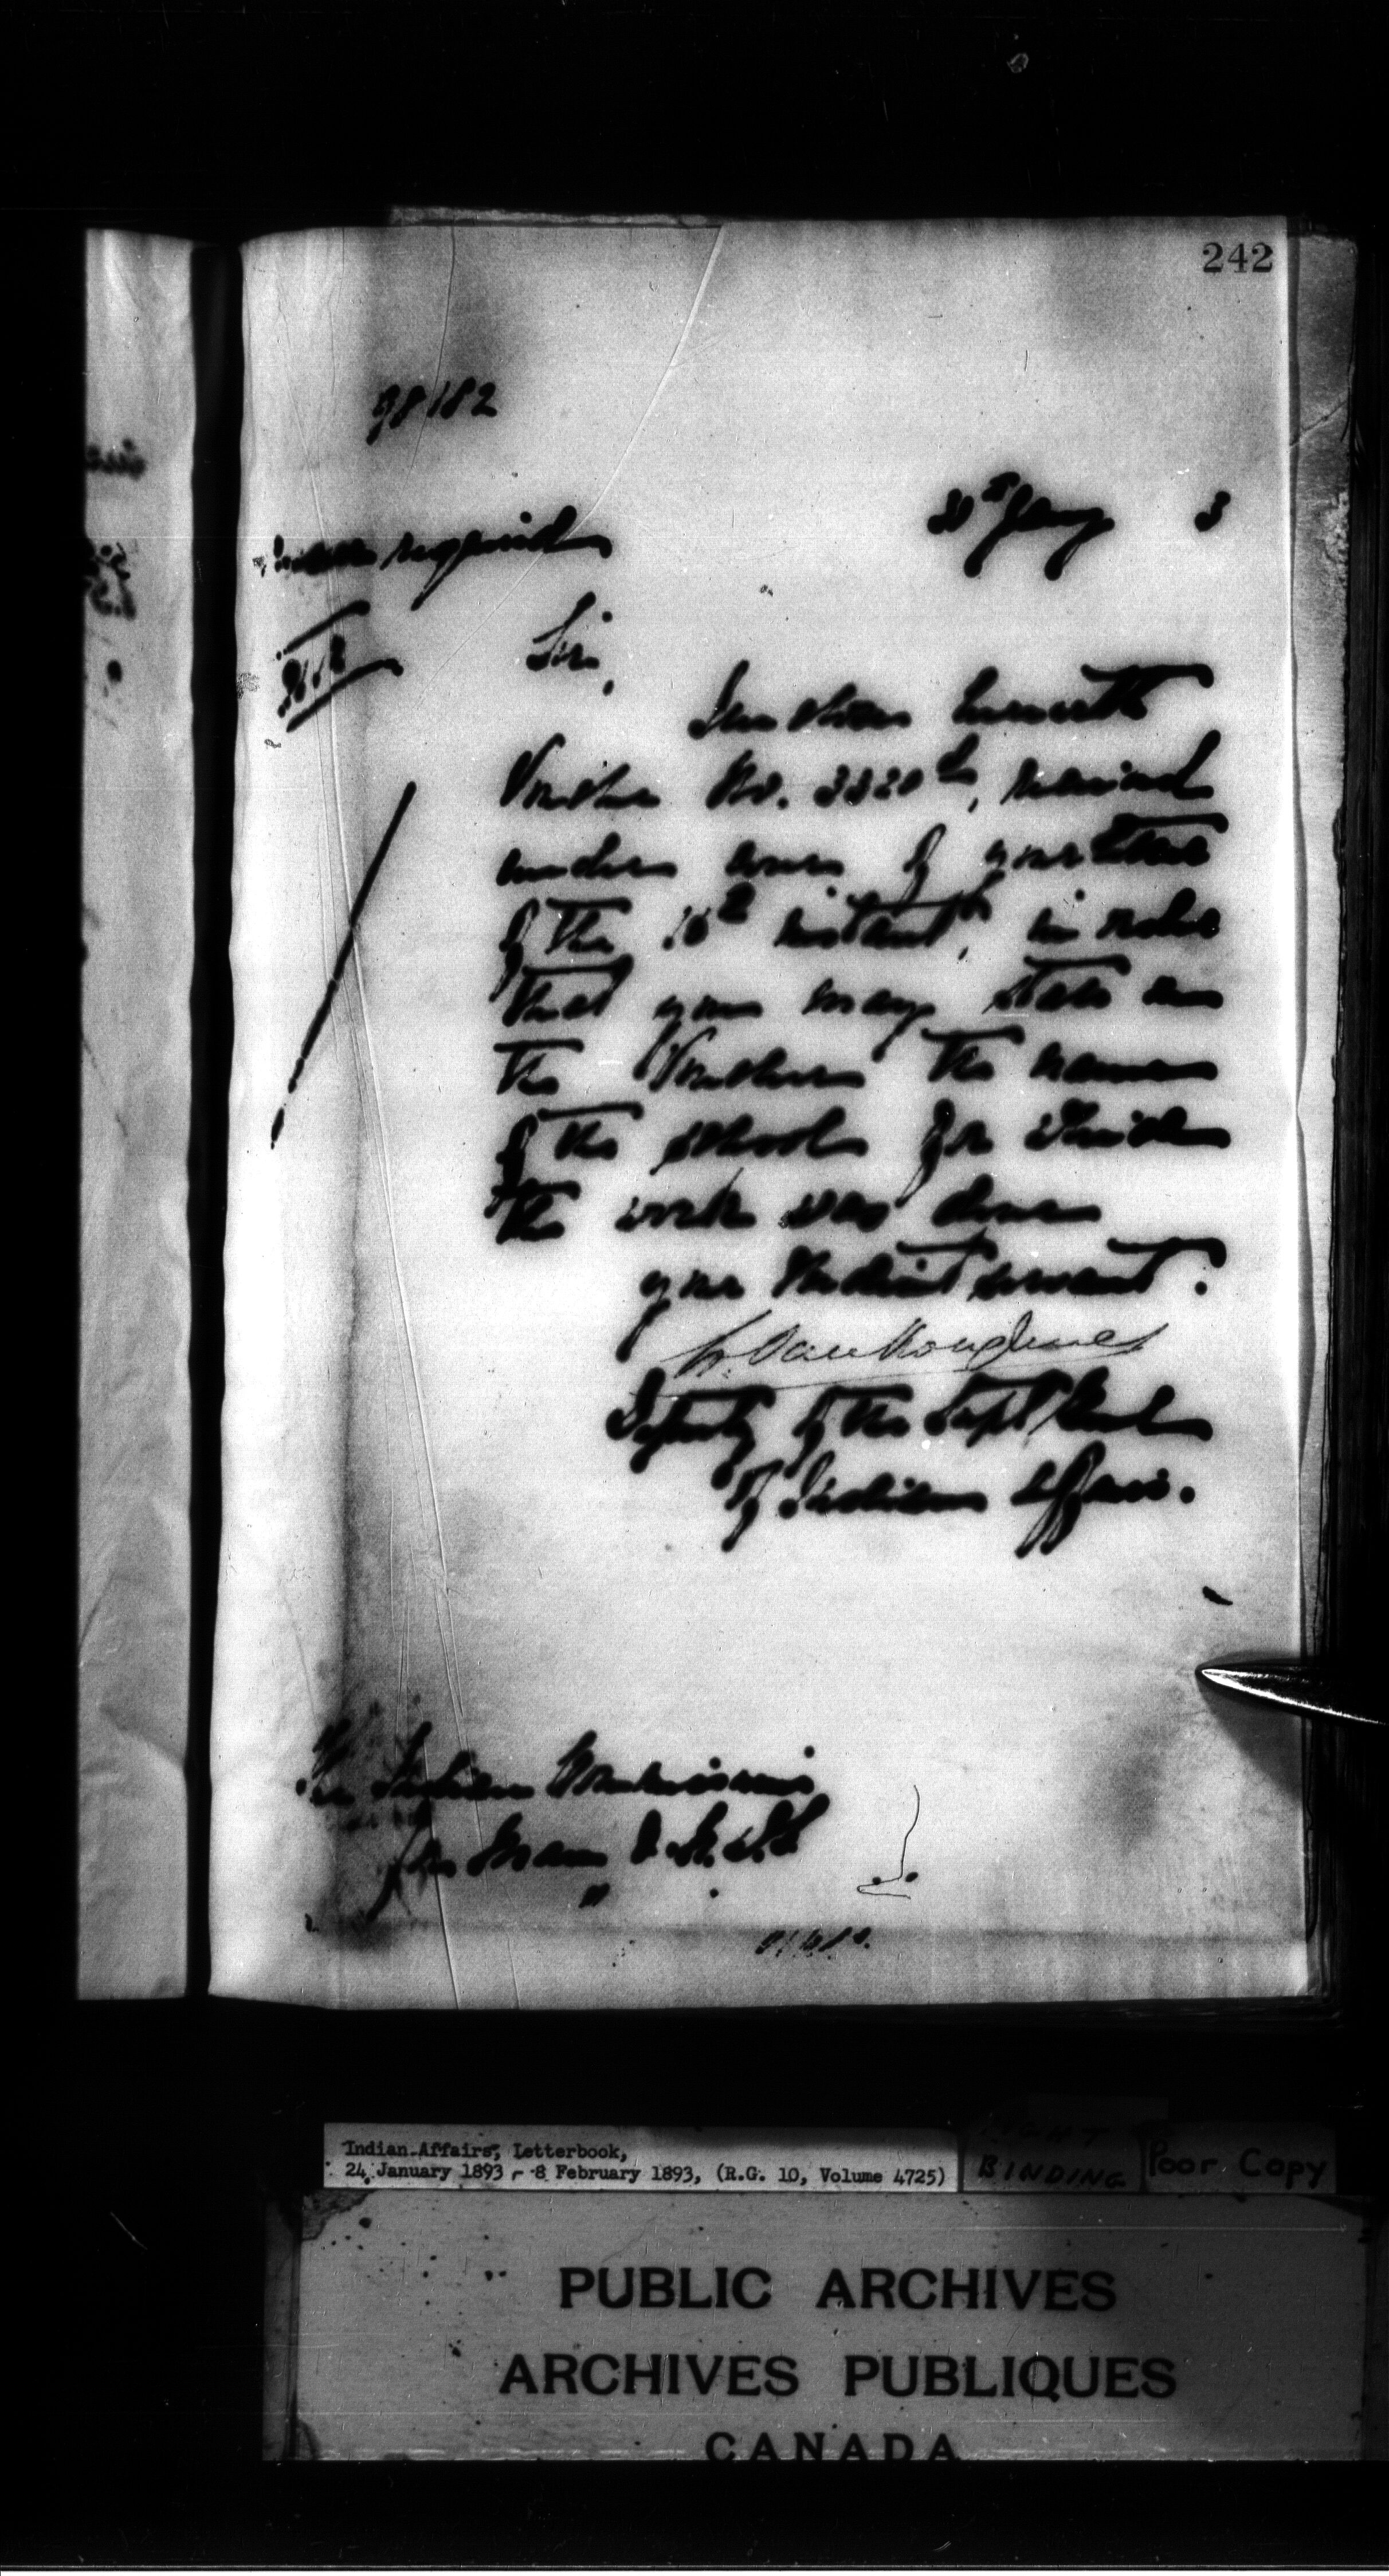 242
98182
31st Jany 3
required
Sir,
I return herewith
Voucher No. 3320, received
under cover of your letter
of the 16th instant, in order
that you may state on
the Vouchers the names
of the schools for which
the work was done
your obedient servant.
L. Vankoughnet
Deputy of the Supt. Genl.
of Indian Affairs.
The Indian Commissioner
Indian Affairs, Letterbook,
24 January 1893 - 8 February 1893, (R.G. 10, Volume 4725)
BINDING
Poor Copy
PUBLIC ARCHIVES
ARCHIVES PUBLIQUES
CANADA